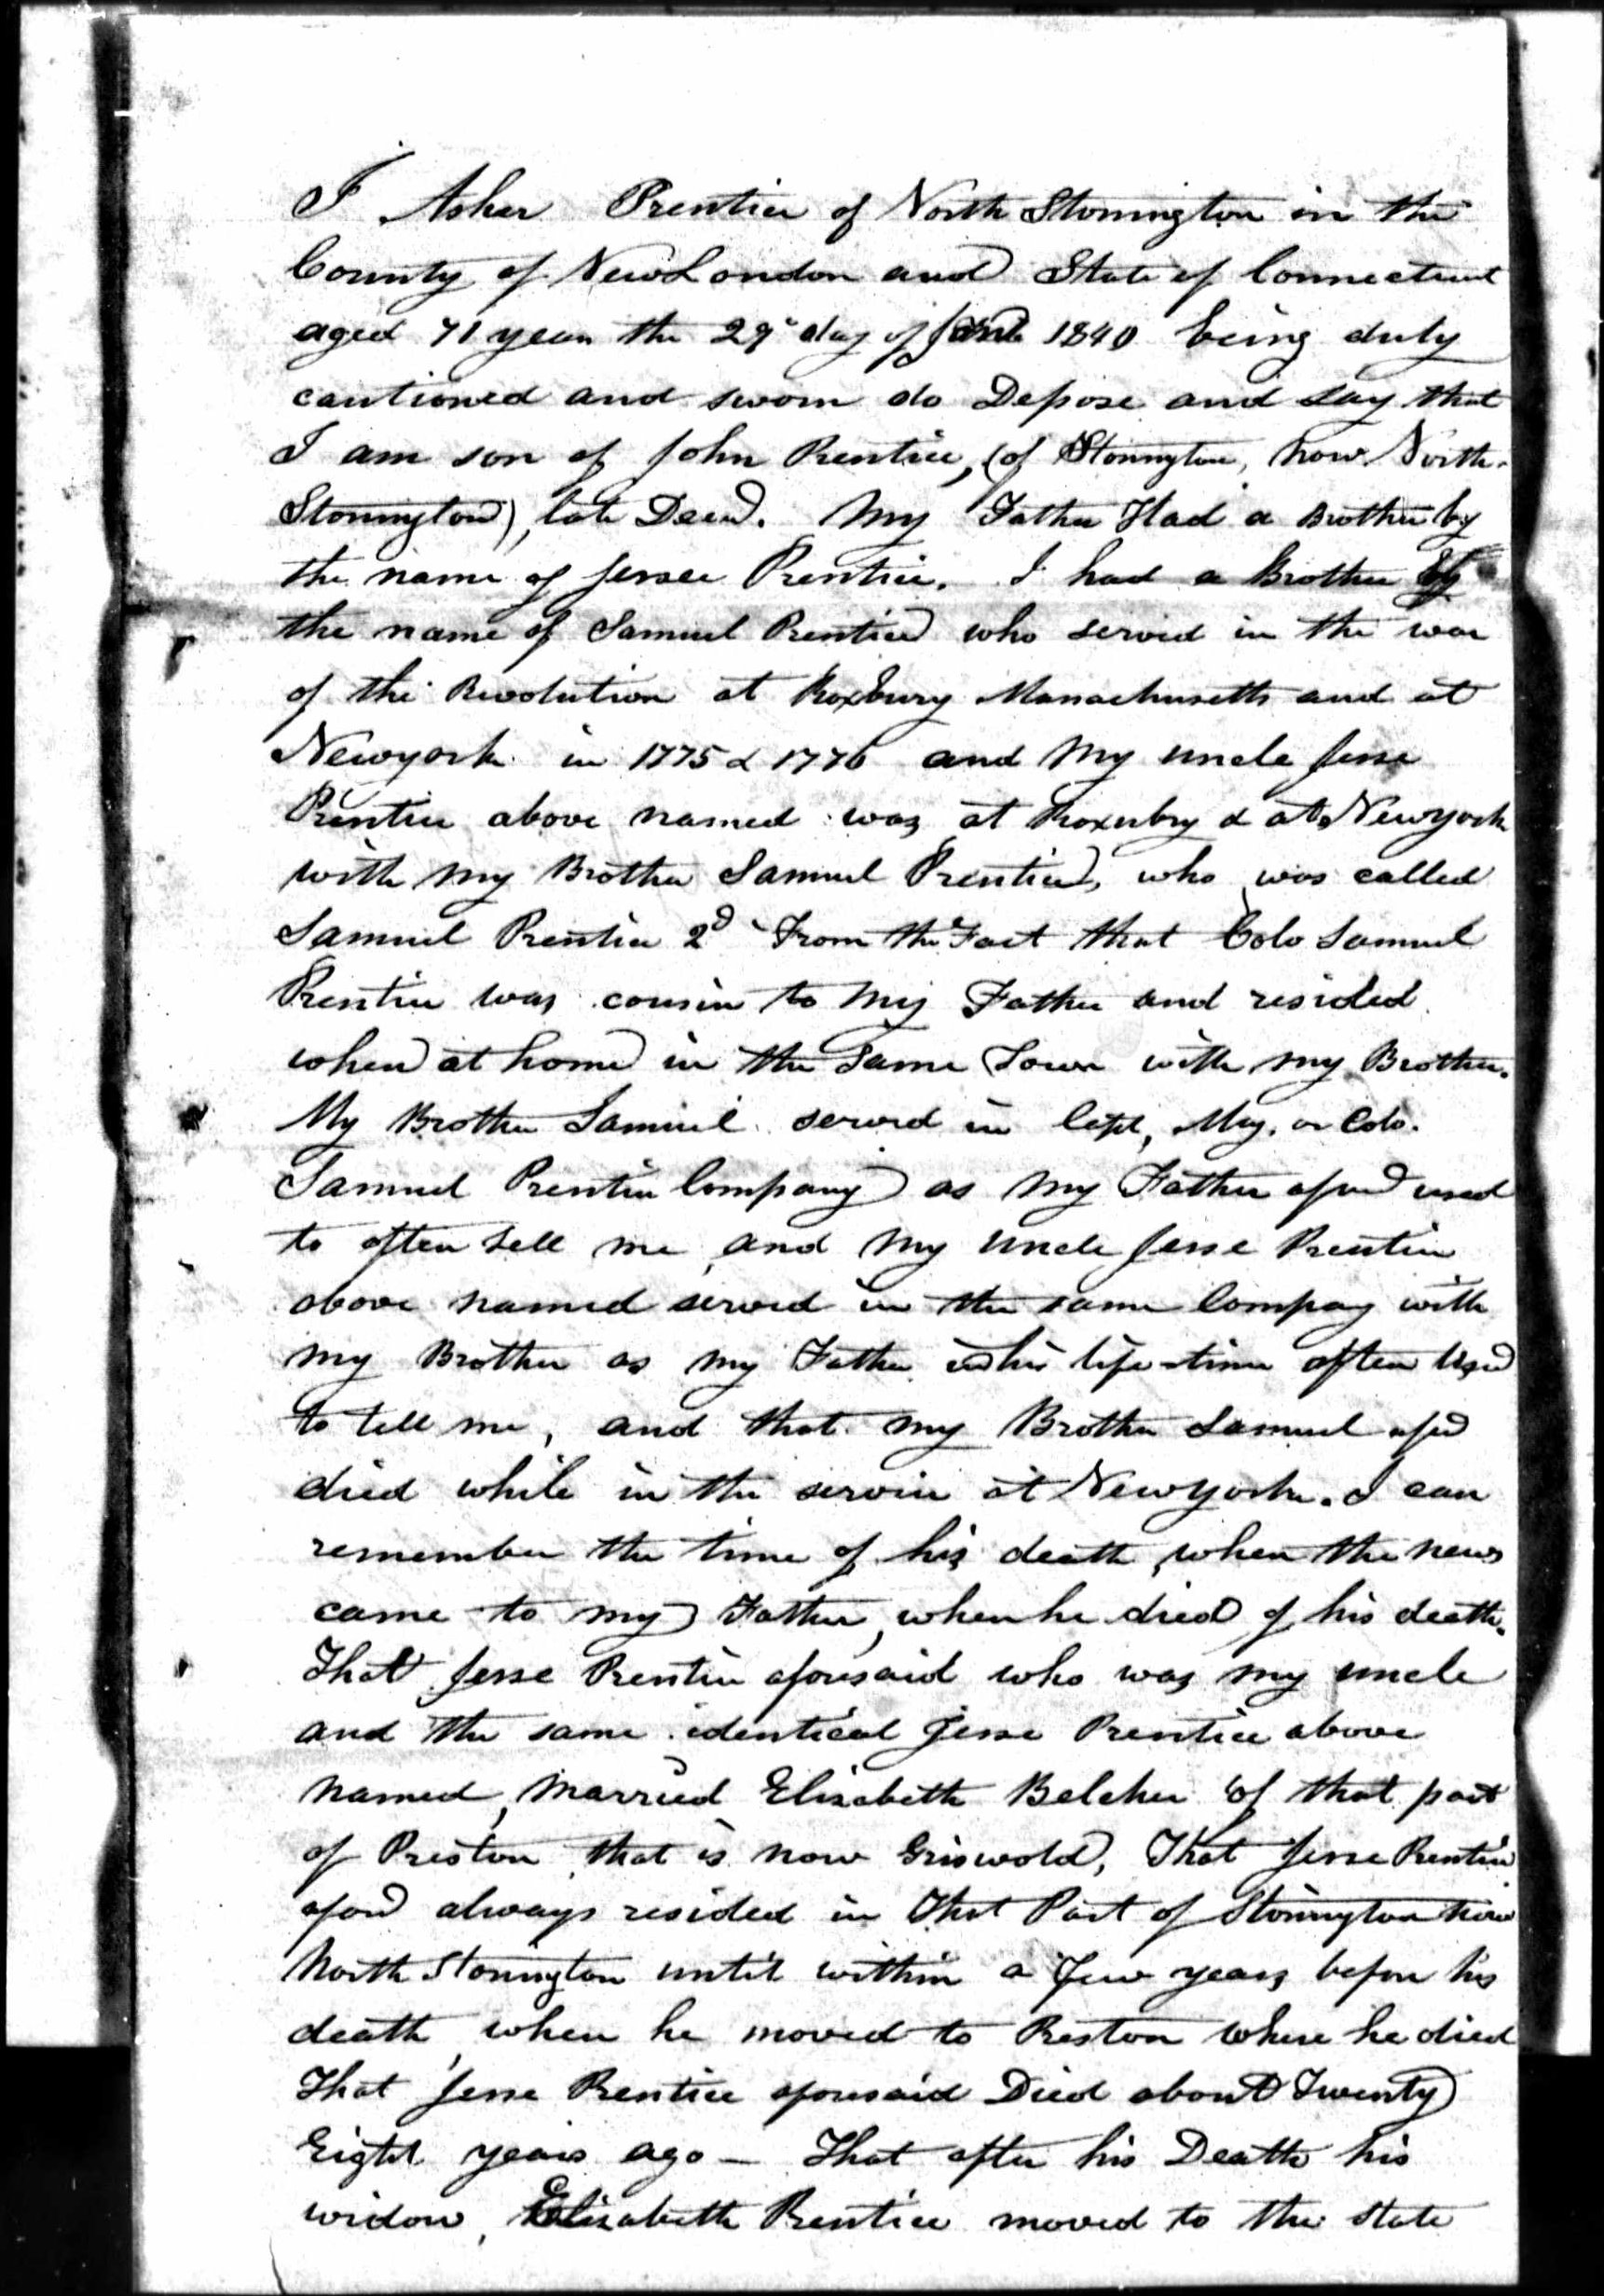 I Asher Prentice of North Stonington in the
County of New London and State of Connecticut
aged 71 years the 29th day of June 1840 being duly
cautioned and sworn do Depose and Say that
I am son of John Prentice, (of Stonington, now North-
Stonington), late Decd. My Father Had a Brother by
the name of Jessee Prentice. I had a Brother by
the name of Samuel Prentice who served in the war
of the Revolution at Roxbury Massachusetts and at
Newyork in 1775 & 1776 and My uncle Jesse
Prentice above named was at Roxubry & at Newyork
with my Brother Samuel Prentice, who was called
Samuel Prentice 2d From the Fact that Colo Samuel
Prentice was cousin to My Father and resided
when at home in the Same Town with my Brother.
My Brother Samuel served in Capt, Maj. or Colo.
Samuel Prentice Company as My Father aford used
to often tell me, and My uncle Jesse Prentice
above named served in the same Compay with
my Brother as my Father in his life-time often Used
to tell me, and that my Brother Samuel afsd
died while in the service at Newyork. I can
remember the time of his death, when the news
came to my Father, when he died of his death.
That Jesse Prentice aforesaid who was my uncle
and the same identical Jesse Prentice above
named, married Elisabeth Belcher of that part
of Preston that is now Griswold, That Jesse Prentice
aford always resided in That Part of Stonington now
North Stonington until within a Few years before his
death, when he moved to Preston where he died
That Jesse Prentice aforesaid Died about Twenty
Eight years ago — That after his Death his
widow, Elisabeth Prentice moved to the State